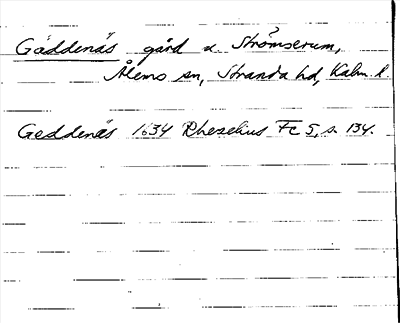 Gäddenäs gård u Strömserum,
Ålems sn, Stranda hd, Kalm. l.
Geddenäs 1634 Rhezelius Fc 5, s. 134.